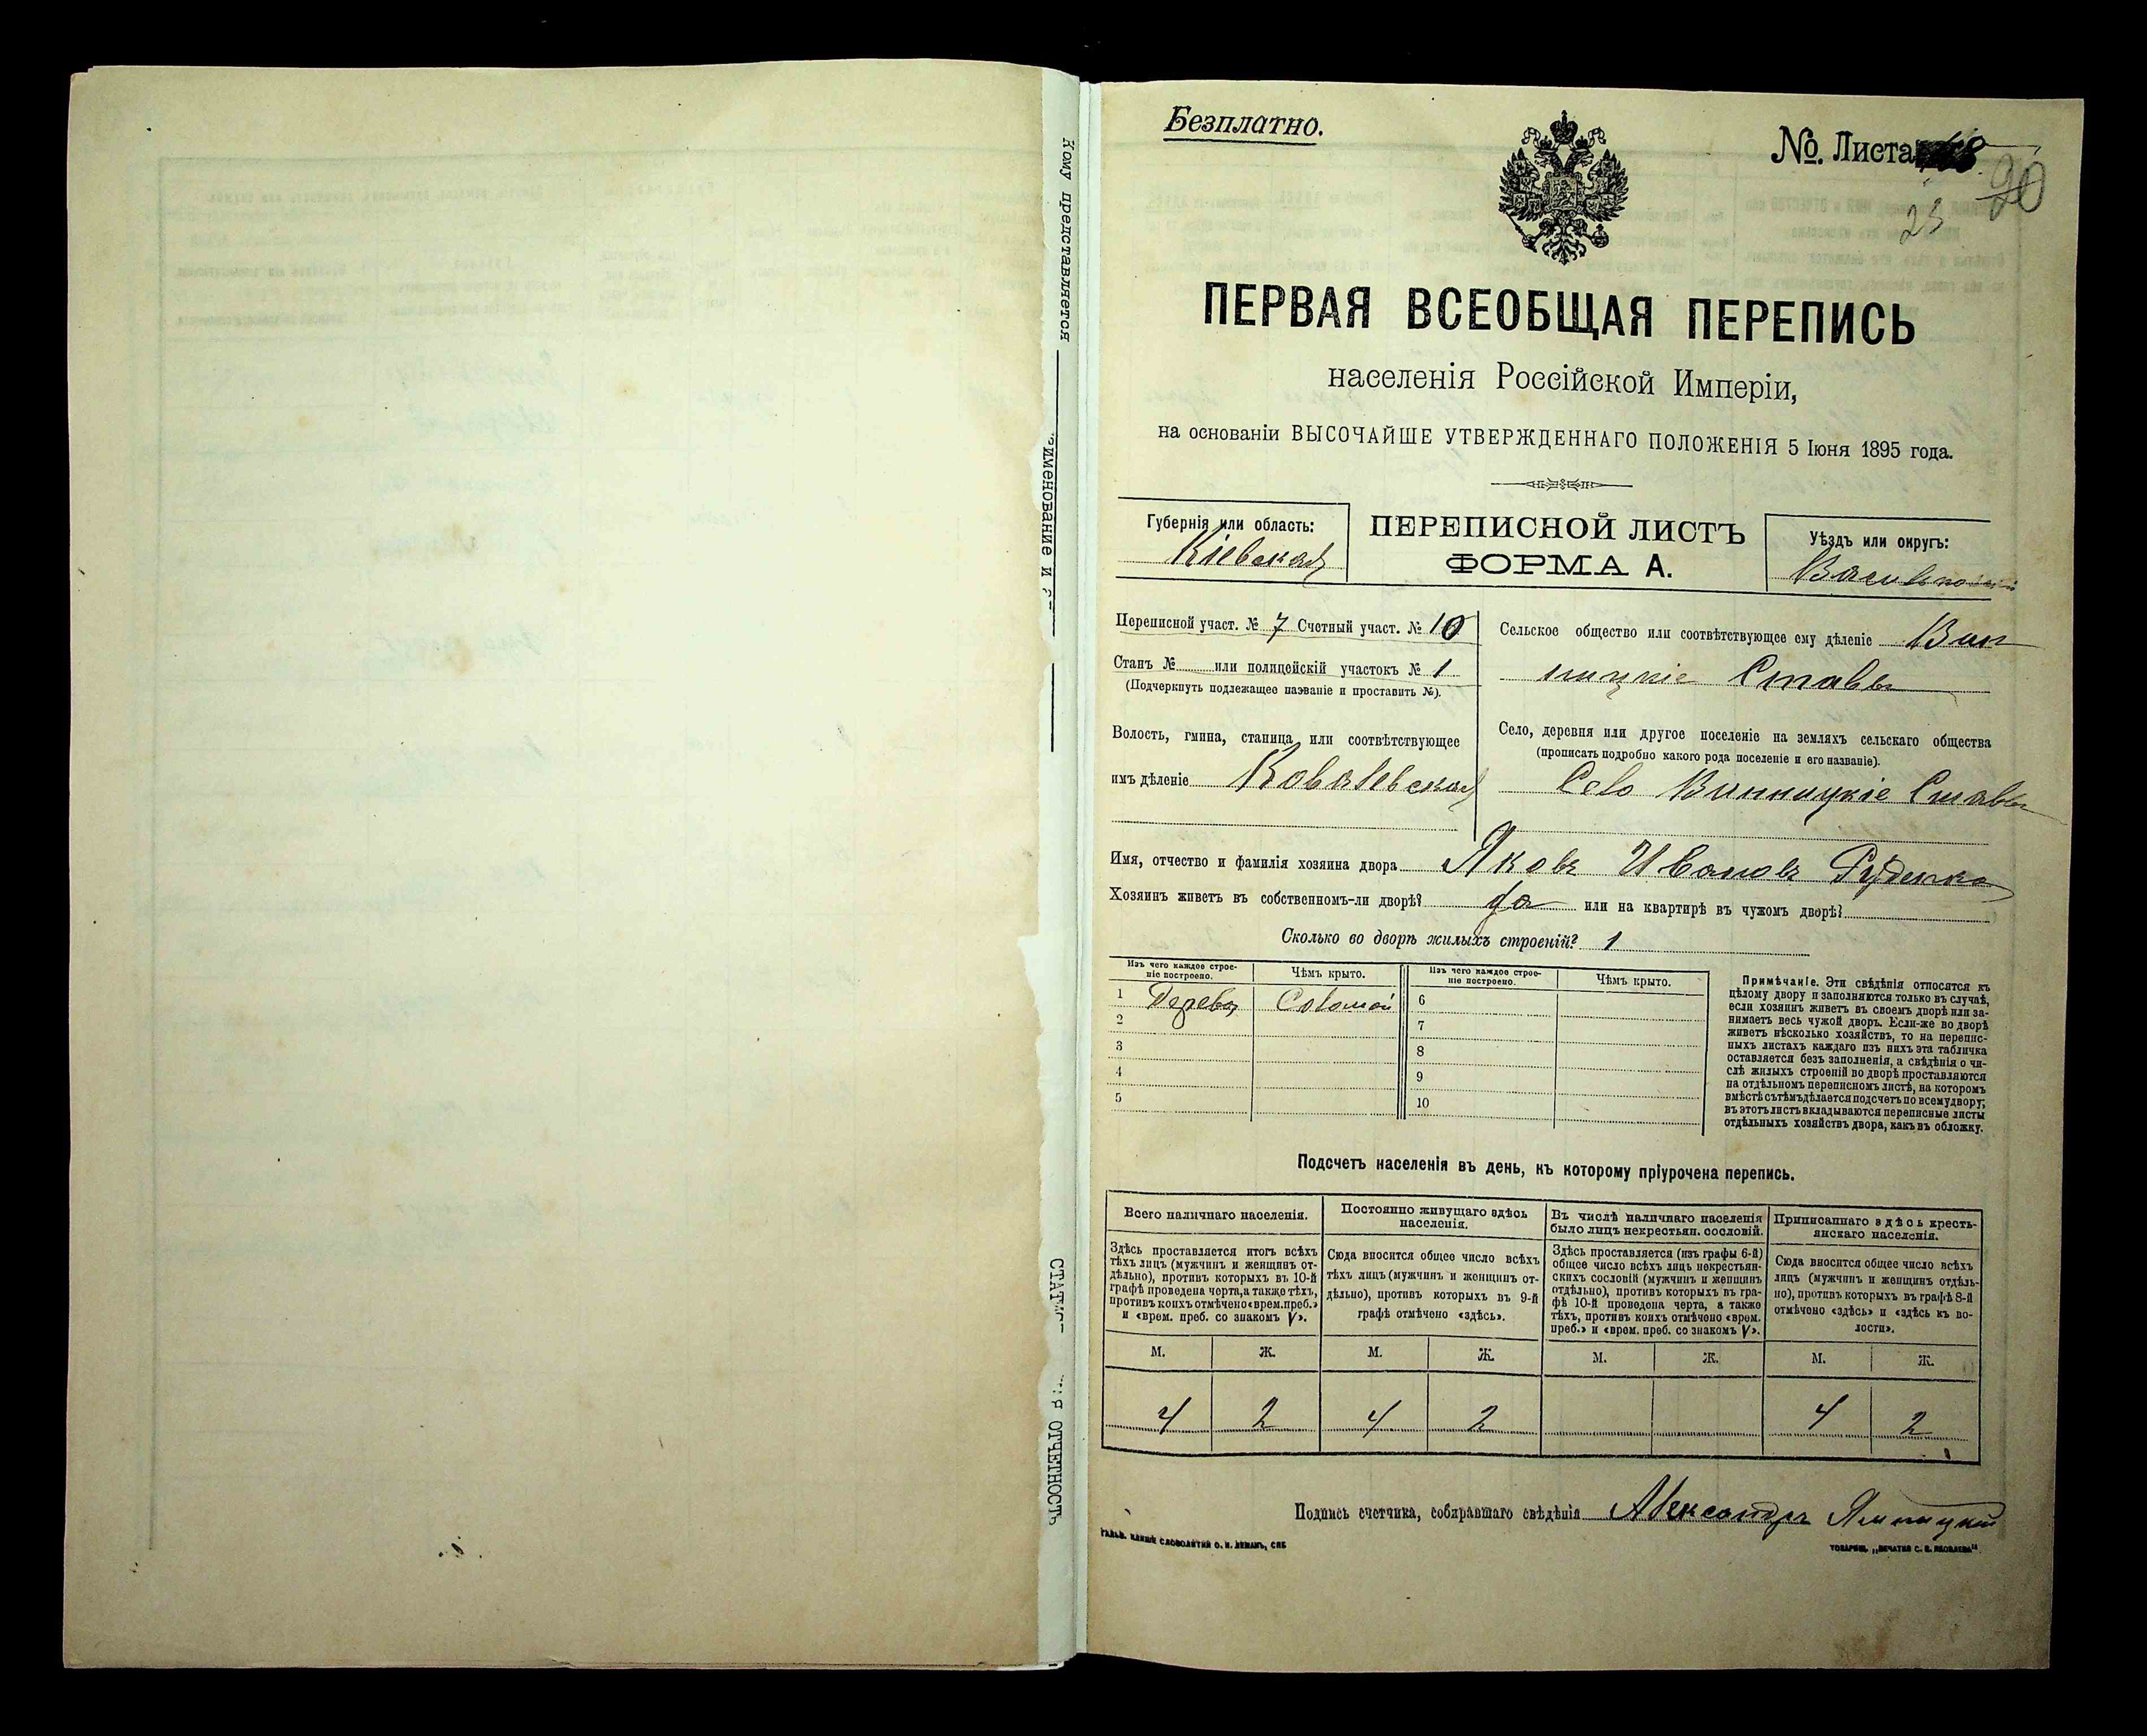 Безплатно.
№ Листа 18
90
23
ПЕРВАЯ ВСЕОБЩАЯ ПЕРЕПИСЬ
населенія Россійской Имперіи,
на основаніи ВЫСОЧАЙШЕ УТВЕРЖДЕННАГО ПОЛОЖЕНІЯ 5 Іюня 1895 года.
Губернія или область:
Кіевская
ПЕРЕПИСНОЙ ЛИСТЪ
ФОРМА А.
Уѣздъ или округъ:
Васильковскій
Переписной участ. № 7 Счетный участ. № 10
Станъ № или полицейскій участокъ № 1
(Подчеркнуть подлежащее названіе и проставить №).
Волость, гмина, станица или соотвѣтствующее
имъ дѣленіе Ковалевская
Сельское общество или соотвѣтствующее ему дѣленіе Вин
ницкіе Ставы
Село, деревня или другое поселеніе на земляхъ сельскаго общества
(прописать подробно какого рода поселеніе и его названіе).
Село Винницкіе Ставы
Имя, отчество и фамилія хозяина двора Яковъ Ивановъ Руденко
Хозяинъ живетъ въ собственномъ-ли дворѣ? да или на квартирѣ въ чужомъ дворѣ?
Сколько во дворѣ жилыхъ строеній? 1
Изъ чего каждое строе-
ніе построено.
Чѣмъ крыто.
Изъ чего каждое строе-
ніе построено.
Чѣмъ крыто.
1 Дерева Соломой 6
2 7
3 8
4 9
5 10
Примѣчаніе. Эти свѣдѣнія относятся къ
цѣлому двору и заполняются только въ случаѣ,
если хозяинъ живетъ въ своемъ дворѣ или за-
нимаетъ весь чужой дворъ. Если-же во дворѣ
живетъ нѣсколько хозяйствъ, то на перепис-
ныхъ листахъ каждаго изъ нихъ эта табличка
оставляется безъ заполненія, а свѣдѣнія о чи-
слѣ жилыхъ строеній во дворѣ проставляются
на отдѣльномъ переписномъ листѣ, на которомъ
вмѣстѣ съ тѣмъ дѣлается подсчетъ по всему двору;
въ этотъ листъ вкладываются переписные листы
отдѣльныхъ хозяйствъ двора, какъ въ обложку.
Подсчетъ населенія въ день, къ которому пріурочена перепись.
Всего наличнаго населенія.
Здѣсь проставляется итогъ всѣхъ
тѣхъ лицъ (мужчинъ и женщинъ от-
дѣльно), противъ которыхъ въ 10-й
графѣ проведена черта, а также тѣхъ,
противъ коихъ отмѣчено «врем. преб.»
и «врем. преб. со знакомъ V».
Постоянно живущаго здѣсь
населенія.
Сюда вносится общее число всѣхъ
тѣхъ лицъ (мужчинъ и женщинъ от-
дѣльно), противъ которыхъ въ 9-й
графѣ отмѣчено «здѣсь».
Въ числѣ наличнаго населенія
было лицъ некрестьян. сословій.
Здѣсь проставляется (изъ графы 6-й)
общее число всѣхъ лицъ некрестьян-
скихъ сословій (мужчинъ и женщинъ
отдѣльно), противъ которыхъ въ гра-
фѣ 10-й проведена черта, а также
тѣхъ, противъ коихъ отмѣчено «врем.
преб.» и «врем. преб. со знакомъ V».
Приписаннаго здѣсь кресть-
янскаго населенія.
Сюда вносится общее число всѣхъ
лицъ (мужчинъ и женщинъ отдѣль-
но), противъ которыхъ въ графѣ 8-й
отмѣчено «здѣсь» и «здѣсь къ во-
лости».
М. Ж. М. Ж. М. Ж. М. Ж.
4 2 4 2 4 2
Подпись счетчика, собиравшаго свѣдѣнія Александръ
ГАЛЬВ. КЛИШЕ СЛОВОЛИТНИ О. И. ЛЕМАНЪ, СПБ
ТОВАРИЩ. „ПЕЧАТНЯ С. П. ЯКОВЛЕВА“
Кому представляется
именованіе и
ОТЧЕТНОСТЬ